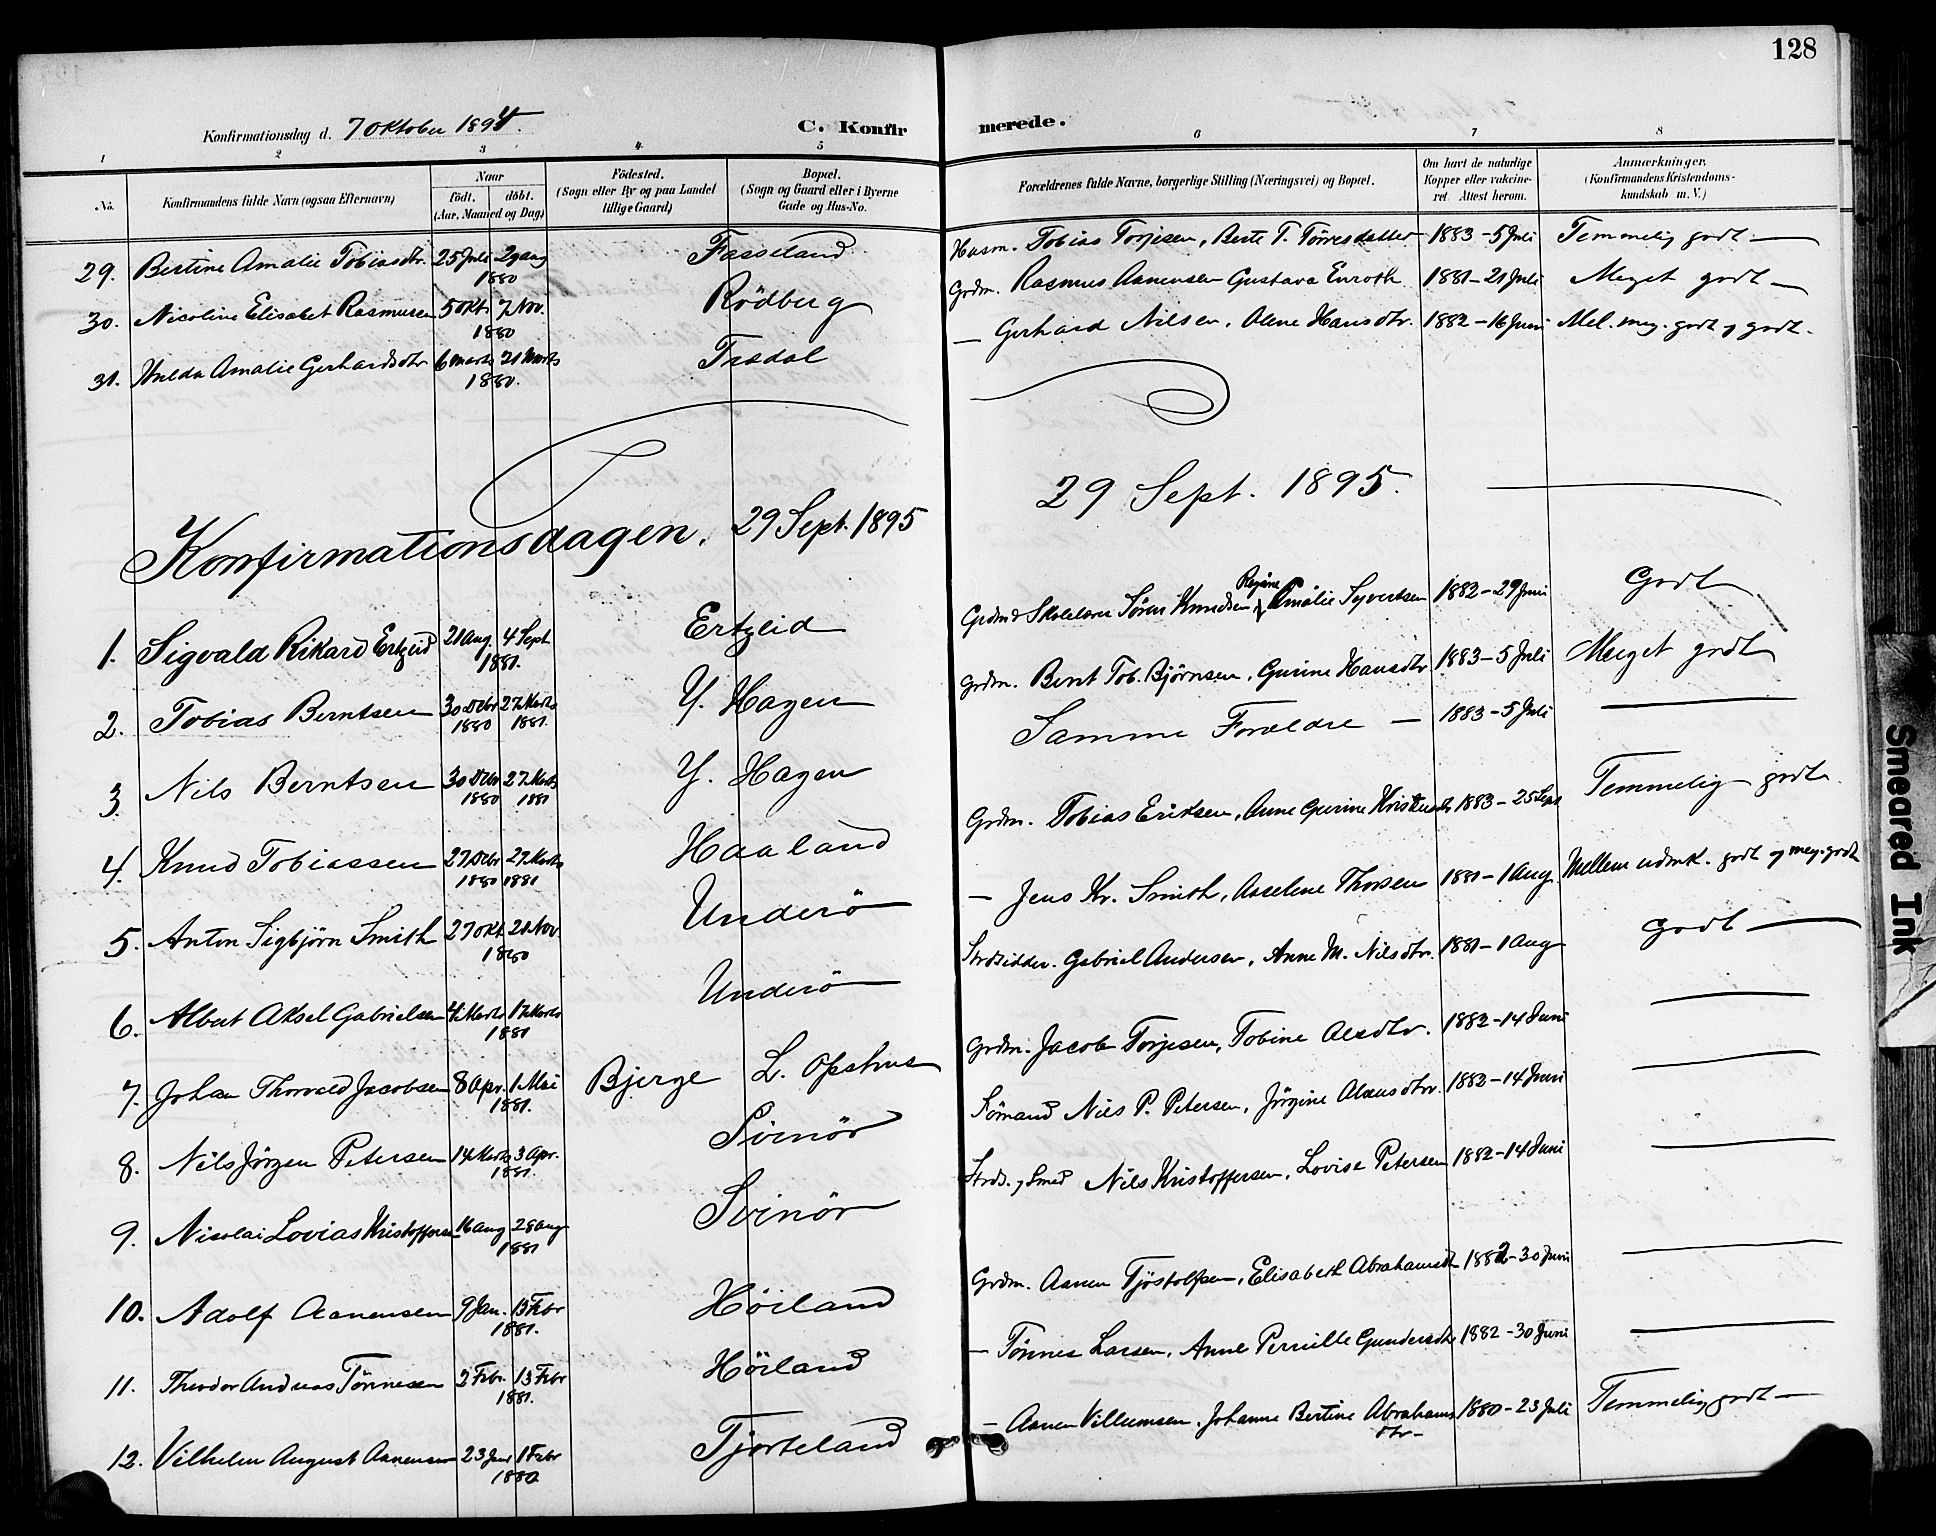 128
Konfirmationsdag d. 7 Oktober 1894.
C. Konfirmerede.
1 2 3 4 5 6 7 8
No. Konfirmandens fulde Navn (ogsaa Efternavn) Naar født. døbt. (Aar, Maaned og Dag) Fødested. (Sogn eller By og paa Landet tillige Gaard) Bopæl. (Sogn og Gaard eller i Byerne Gade og Hus-No. Forældrenes fulde Navne, borgerlige Stilling (Næringsvei) og Bopæl. Om havt de naturlige Kopper eller vakcineret. Attest herom. Anmærkninger. (Konfirmandens Kristendomskundskab m. V.)
29. Bertine Amalie Tobiasdtr. 25 Juli 2 9 aug 1880 Fasseland Husm. Tobias Torjesen, Berte T. Tørresdatter 1883 – 5 Juli Temmelig godt —
30. Nicoline Elisabet Rasmusen 5 Okt 7 Nov. 1880 Rödberg Grdm. Rasmus Aanensen Gustava Enroth 1881 – 21 Juli Meget godt —
31. Hulda Amalie Gerhardsdtr 6 Marts 21 Marts 1880. Trædal — Gerhard Nilsen, Olene Hansdtr. 1882 – 16 Juni Mel. meg. godt og godt.
Konfirmationsdagen. 29 Sept. 1895
29 Sept. 1895.
1. Sigvald Rikard Ertzeid 21 Aug. 4 Sept 1881. Ertzeid Grdm & Skolelærer Sören Knudsen, Regine Amalie Syvertsen 1882 – 29 Juni Godt
2. Tobias Berntsen 30 Debr 1880 27 Marts 1881. Y. Hagen Grdm. Bent Tob. Bjørnsen, Gurine Hansdtr 1883 – 5 Juli Meget godt
3. Nils Berntsen 30 Debr 1880 27 Marts 1881 Y. Hagen Samme Forældre — 1883 – 5 Juli —
4. Knud Tobiassen 27 Debr 1880 27 Marts 1881 Haaland Grdm. Tobias Eriksen, Anne Gurine Kristensdtr 1883 – 25 Sept Temmelig godt
5. Anton Sigbjörn Smith 27 Okt. 21 Nov 1880 Underö — Jens Kr. Smith, Asseline Thorsen 1881 – 1 Aug. Mellem udmk. godt og meg. godt
6. Albert Aksel Gabrielsen 4 Marts 17 Marts 1881 Underö Strdsidder. Gabriel Andersen, Anne M. Nilsdtr. 1881 – 1 Aug Godt —
7. Johan Thorvald Jacobsen 8 Apr. 1 Mai 1881. Bjerge L. Opshus Grdm. Jacob Torjesen, Tobine Alexdtr. 1882 – 14 Juni —
8. Nils Jörgen Petersen 14 Marts 3 Apr. 1881. Svinör Sömand Nils P. Petersen, Jörgine Olausdtr. 1882 – 14 Juni —
9. Nicolai Lovias Kristoffersen 16 aug 28 aug 1881 Svinör Strds. og Smed Nils Kristoffersen, Lovise Petersen 1882 – 14 Juni —
10. Adolf Aanensen 9 Jan. 13 Febr 1881. Höiland Grdm. Aanen Tjöstolfsen, Elisabeth Abrahamsdtr 1882 – 30 Juni —
11. Theodor Andreas Tönnesen 2 Febr. 13 Febr 1881. Höiland — Tönnes Larsen, Anne Pernille Gundersdtr 1882 – 30 Juni —
12. Vilhelm August Aanensen 23 Janr 1 Febr 1880 Tjorteland — Aanen Villumsen. Johanne Bertine Abrahamsdtr — 1880 – 23 Juli Temmelig godt —
Smeared Ink